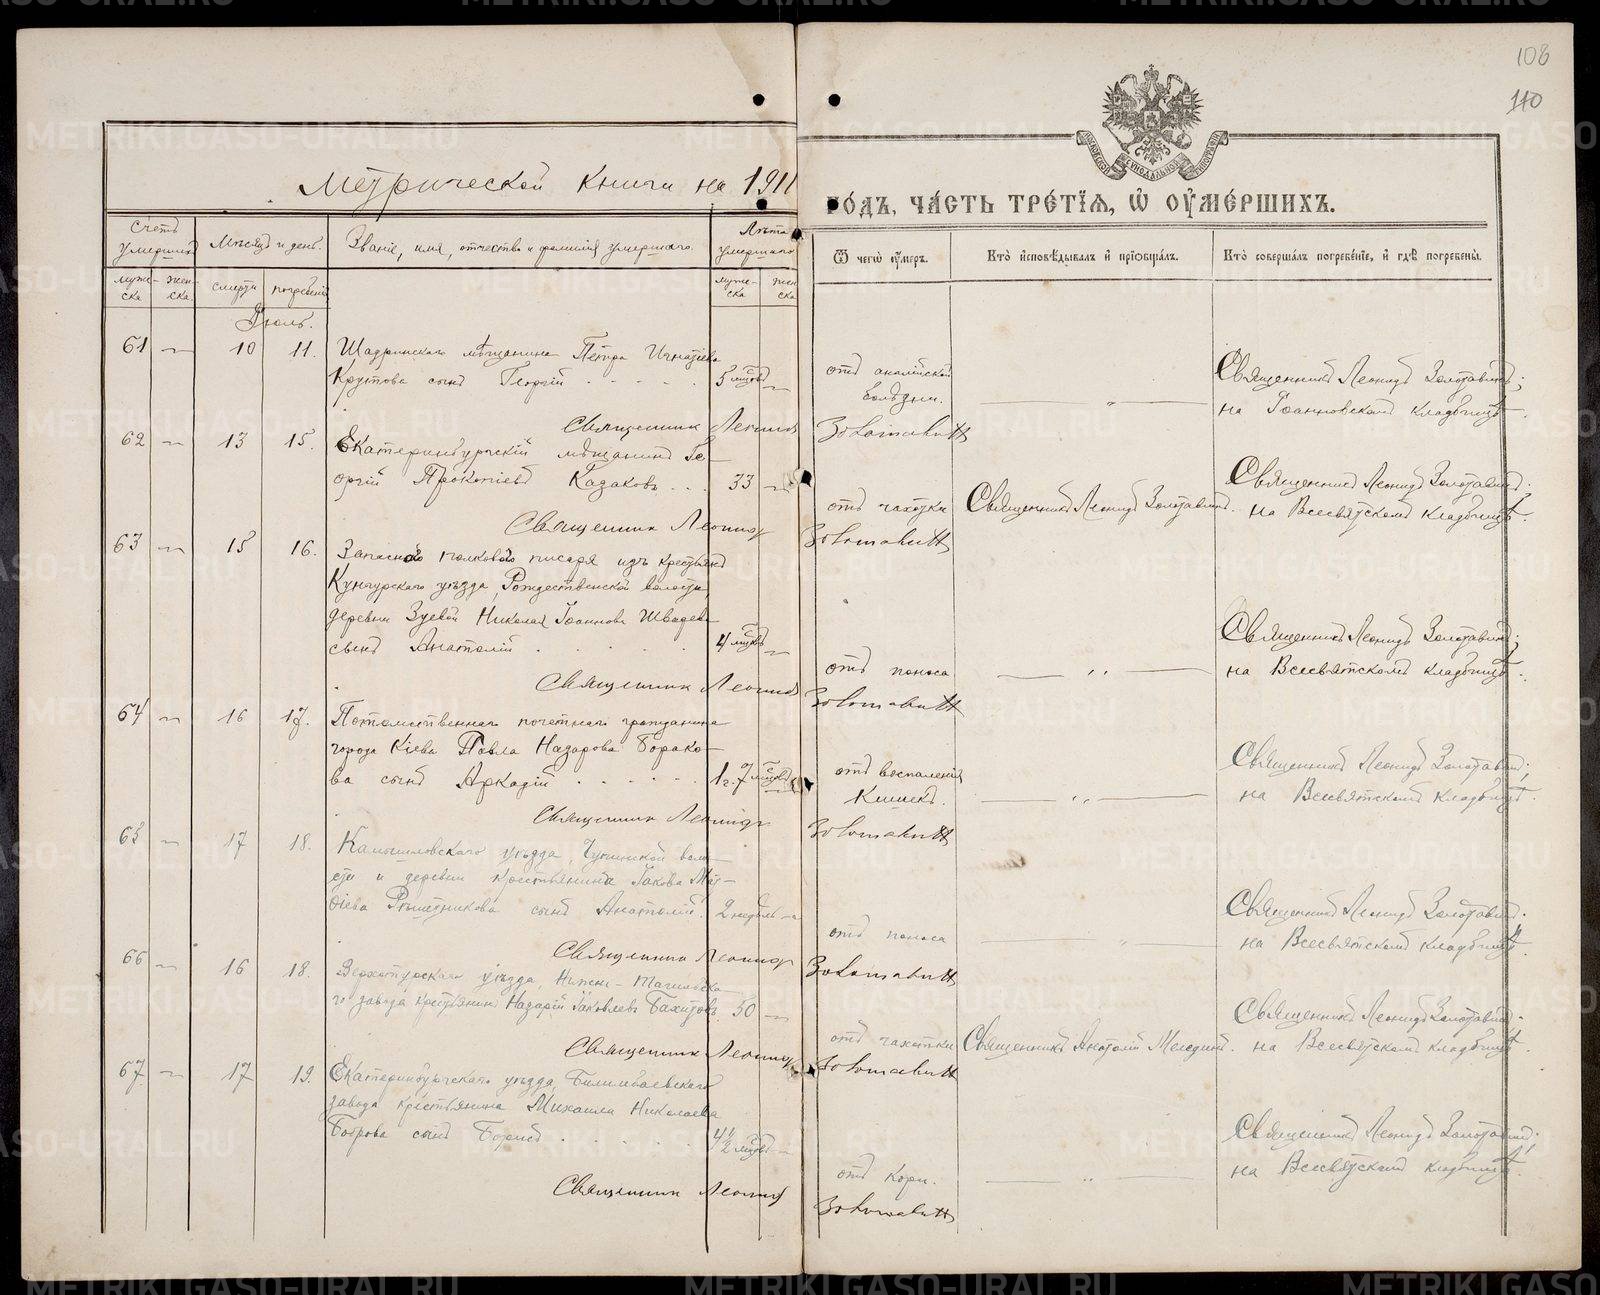 108
110
Метрической книги на 1911
годъ, часть третїѧ, ѡ оумершихъ.
Счетъ умершихъ
Мѣсяцъ и день.
Званіе, имя, отчество и фамилія умершаго.
Лѣта умершаго
Ѿ чегѡ оумеръ.
Кто исповѣдывалъ и прїобщалъ.
Кто совершалъ погребенїе, и гдѣ погребены.
муже-ска
жен-ска
смерти
погребенія
муже-ска
жен-ска
Іюль.
61 10 11. Шадринскаго мѣщанина Петра Игнатіева
Крутова сынъ Георгій 5 мѣсяц. отъ англійской болѣзни. Священникъ Леонидъ Золотавинъ;
на Іоанновскомъ кладбищѣ.
Священник Леонид Золотавин
62 13 15. Екатеринбургскій мѣщанинъ Ге-
оргій Прокопіевъ Казаковъ 33 отъ чахотки Священникъ Леонидъ Золотавинъ. Священникъ Леонидъ Золотавинъ;
на Всесвятскомъ кладбищѣ.
Священник Леонид Золотавин
63 15 16. Запаснаго полковаго писаря изъ крестьянъ
Кунгурскаго уѣзда, Рождественской волости,
деревни Зуевой Николая Іоаннова Шведева
сынъ Анатолій 4 мѣсяц. отъ поноса Священникъ Леонидъ Золотавинъ;
на Всесвятскомъ кладбищѣ.
Священник Леонид Золотавин
64 16 17. Потомственнаго почетнаго гражданина
города Кіева Павла Назарова Борако-
ва сынъ Аркадій 1 г. 7 мѣсяц. отъ воспаленія кишекъ. Священникъ Леонидъ Золотавинъ;
на Всесвятскомъ кладбищѣ.
Священник Леонид Золотавин
65 17 18. Камышловскаго уѣзда, Чупинской воло-
сти и деревни крестьянина Іакова Мат-
ѳіева Рѣшетникова сынъ Анатолій. 2 недѣль отъ поноса Священникъ Леонидъ Золотавинъ.
на Всесвятскомъ кладбищѣ.
Священник Леонид Золотавин
66 16 18. Верхотурскаго уѣзда, Нижне-Тагильска-
го завода крестьянинъ Назарій Іаковлевъ 50 отъ чахотки Священникъ Анатолій. Священникъ Леонидъ Золотавинъ.
на Всесвятскомъ кладбищѣ.
Священник Леонид Золотавин
67 17 19. Екатеринбургскаго уѣзда, Билимбаевскаго
завода крестьянина Михаила Николаева
Боброва сынъ Борисъ 4½ мѣсяц. отъ кори. Священникъ Леонидъ Золотавинъ;
на Всесвятскомъ кладбищѣ.
Священник Леонид Золотавин
METRIKI.GASO-URAL.RU